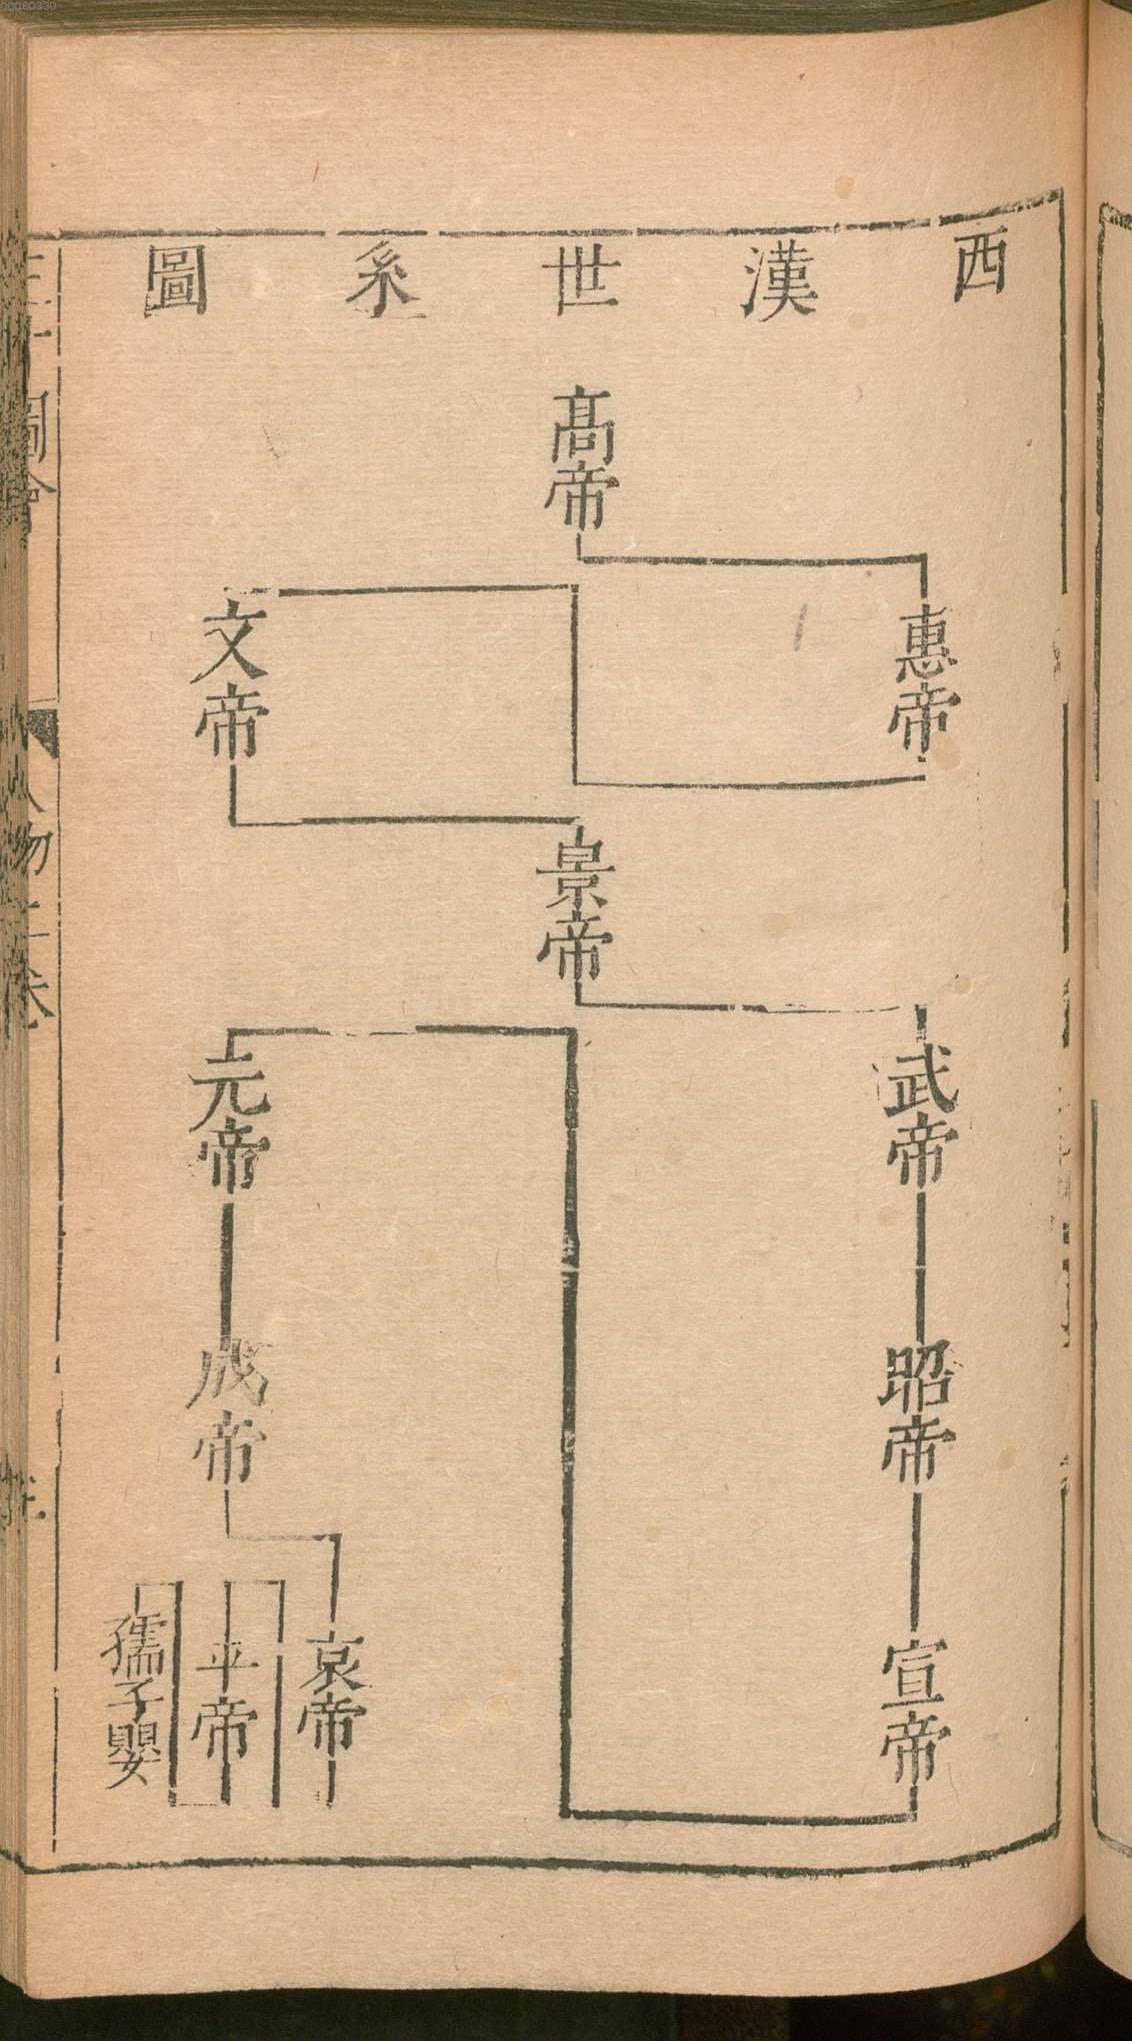 00060339
西漢世系圖
髙帝
惠帝
文帝
景帝
武帝
昭帝
宣帝
元帝
成帝
哀帝
平帝
孺子嬰
圖會
人物二卷